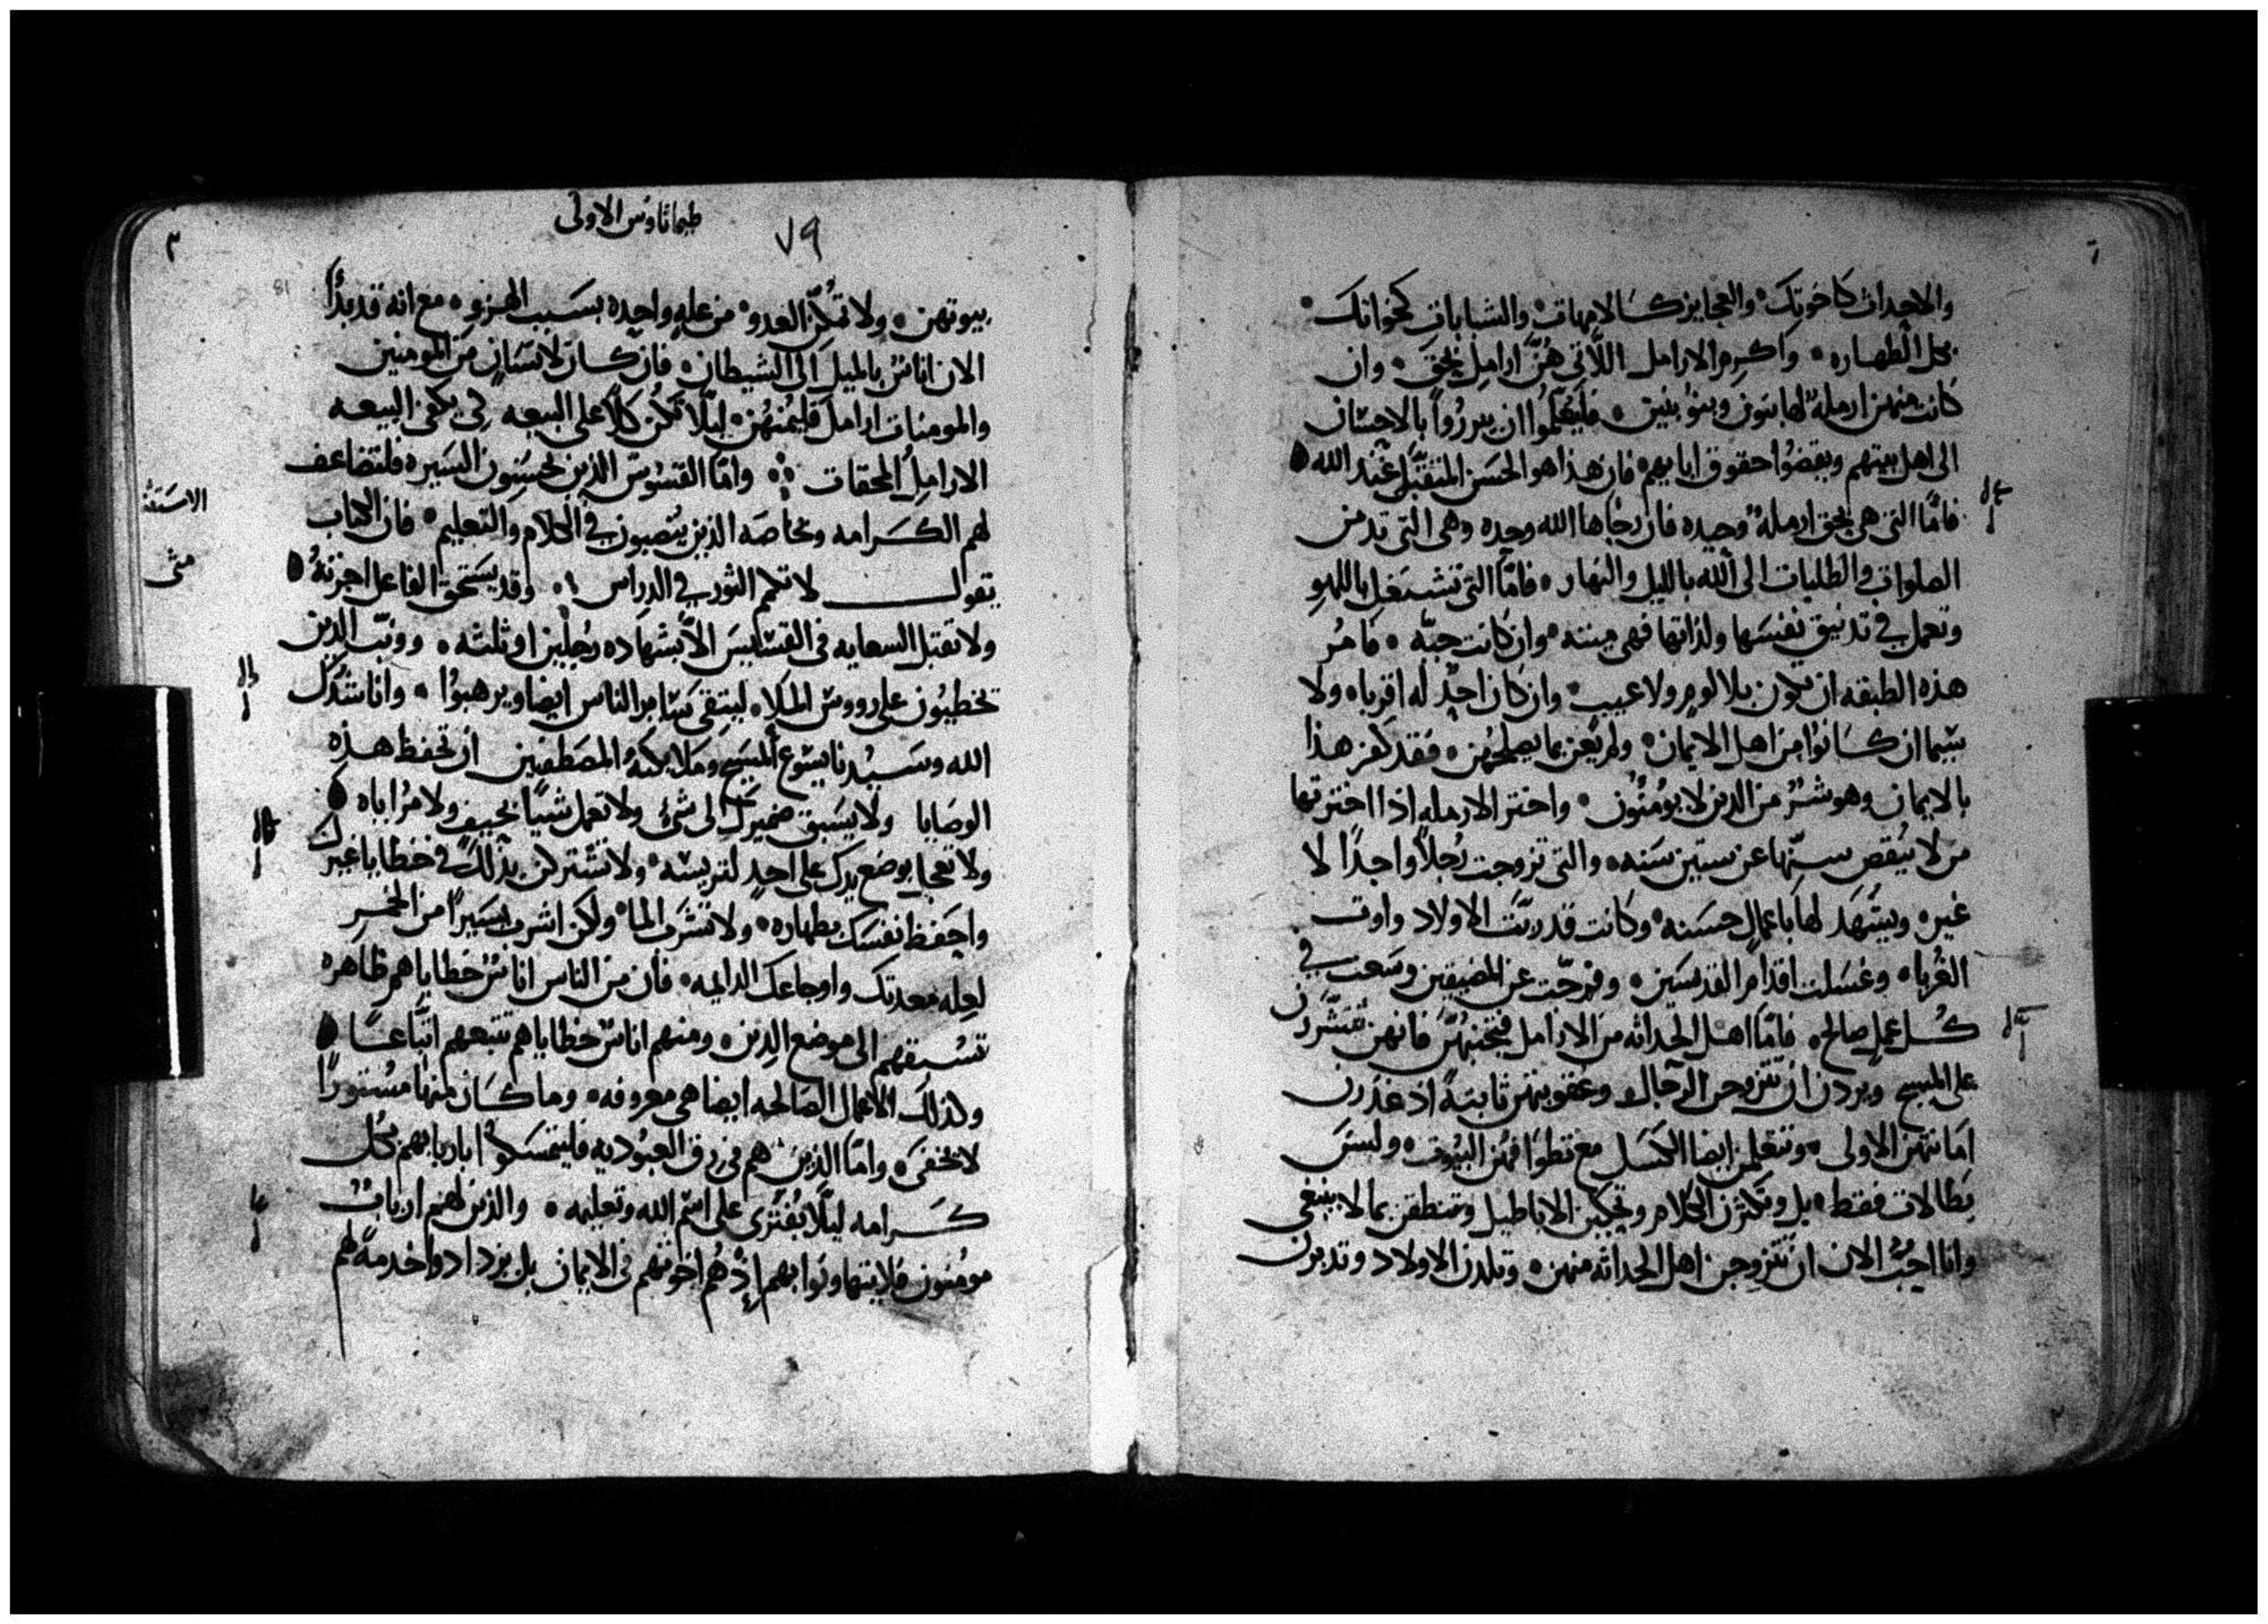 والاحداث كاخوتك والعجايز كالامهات والشابات كخواتك
بكل الطهاره واكرم الارامل اللاتي هُنّ ارامل بحق وان
كانت منهن ارملة لها بنون وبنو بنين فليتعلموا ان يبرزوا بالاحسان
الى اهل بيتهم ويقضوا حقوق ابايهم فان هذا هو الحسن المتقبل عند الله
فامّا التي هي بحق ارملة وحيده فان رجاها الله وحده وهي التي تدمن
الصلوات والطلبات الى الله بالليل والنهار فامّا التي تشتغل باللهو
وتعمل في تدنيق نفسها ولذاتها فهي ميته وان كانت حيّه فامُر
هذه الطبقه ان يكون بلا لوم ولا عيب وان كان احدٌ له اقربا ولا
سيما ان كانوا من اهل الايمان ولم يعن بما يصلحهن فقد كفر هذا
بالايمان وهو شرٌ من الذين لا يومنون واختر الارمله اذا اخترتها
من لا ينقص سنّها عن ستين سنه والتي تزوجت رُجلاً واحدًا لا
غير ويشهد لها باعمال حسنه وكانت قد ربّت الاولاد واوت
الغُربا وغسلت اقدام القديسين وفرجّت عن المضيقين وسعت في
كُل عمل صالح فامّا اهل الحداثه من الارامل فتجنبهُن فانهن تنشزن
على المسيح ويردن ان يتزوجن الرجال وعقوبتهن ثابتةً اذ غدرن
امانتهن الاولى وتتعلمن ايضا الكسل مع تطوافهن البيوت وليس
بطالات فقط بل وتكثرن الكلام وتحكين الاباطيل وتنطقن بما لا ينبغي
وانا احبُ الان ان تتزوجن اهل الحداثه منهن وتلدن الاولاد وتدبرن
طيماثاوس الاولى
٧٩
بيوتهن ولا تُمكنّ العدو من علهٍ واحده بسبب الهزو مع انه قد بدأ
الان اناسٌ بالميل الى الشيطان فان كان لانسان من المومنين
والمومنات ارامل فليمنهُن ليلّا تكُن كلاً على البيعه لكي يكفي البيعه
الارامل المحقات وامّا القسوس الذين يحسنون السيره فلتضاعف
الاستثنا
لهم الكرامه وبخاصه الذين ينصبون في الكلام والتعليم فان الكتاب
متى
يقول لا تكم الثور في الدراس وقد يستحق الفاعل اجرتهُ
ولا تقبل السعايه في القساييس الاّ بشهاده رجلين او ثلثه ووبّت الذين
تخطيون على رووس الملا ليتقى سَاير الناس ايضا ويرهبوا وانا ناشدُك
الله وسيدنا يسوع المسيح وملايكتهُ المصطفين ان تحفظ هذه
الوصايا ولا يسبق ضميرك الى شي ولا تعمل شيًا بحيف ولا مُراباه
ولا تعجل بوضع يدك على احدٍ لتريسه ولا تشترلن بذلك في خطايا غيرك
واحفظ نفسك بطهاره ولا تشرب الما ولكن اشرب يسيراً من الخمر
لعله معدتك واوجاعك الدايمه فان من الناس اناسٌ خطاياهم ظاهره
تسبقهم الى موضع الدين ومنهم اناسٌ خطاياهم تتبعهم اتّباعًا
وكذلك الاعمال الصالحه ايضا هي معروفه وما كان منها مستورًا
لا يخفى وامّا الذين هم في رق العبُوديه فليتمسكوا باربابهم بكل
كرامه ليلّا يُفترى على اسم الله وتعليمه والذين لهم اربابٌ
مومنون فلا يتهاونوا بهم اذ هُم اخوتهم في الايمان بل يزدادوا خدمةً لهم